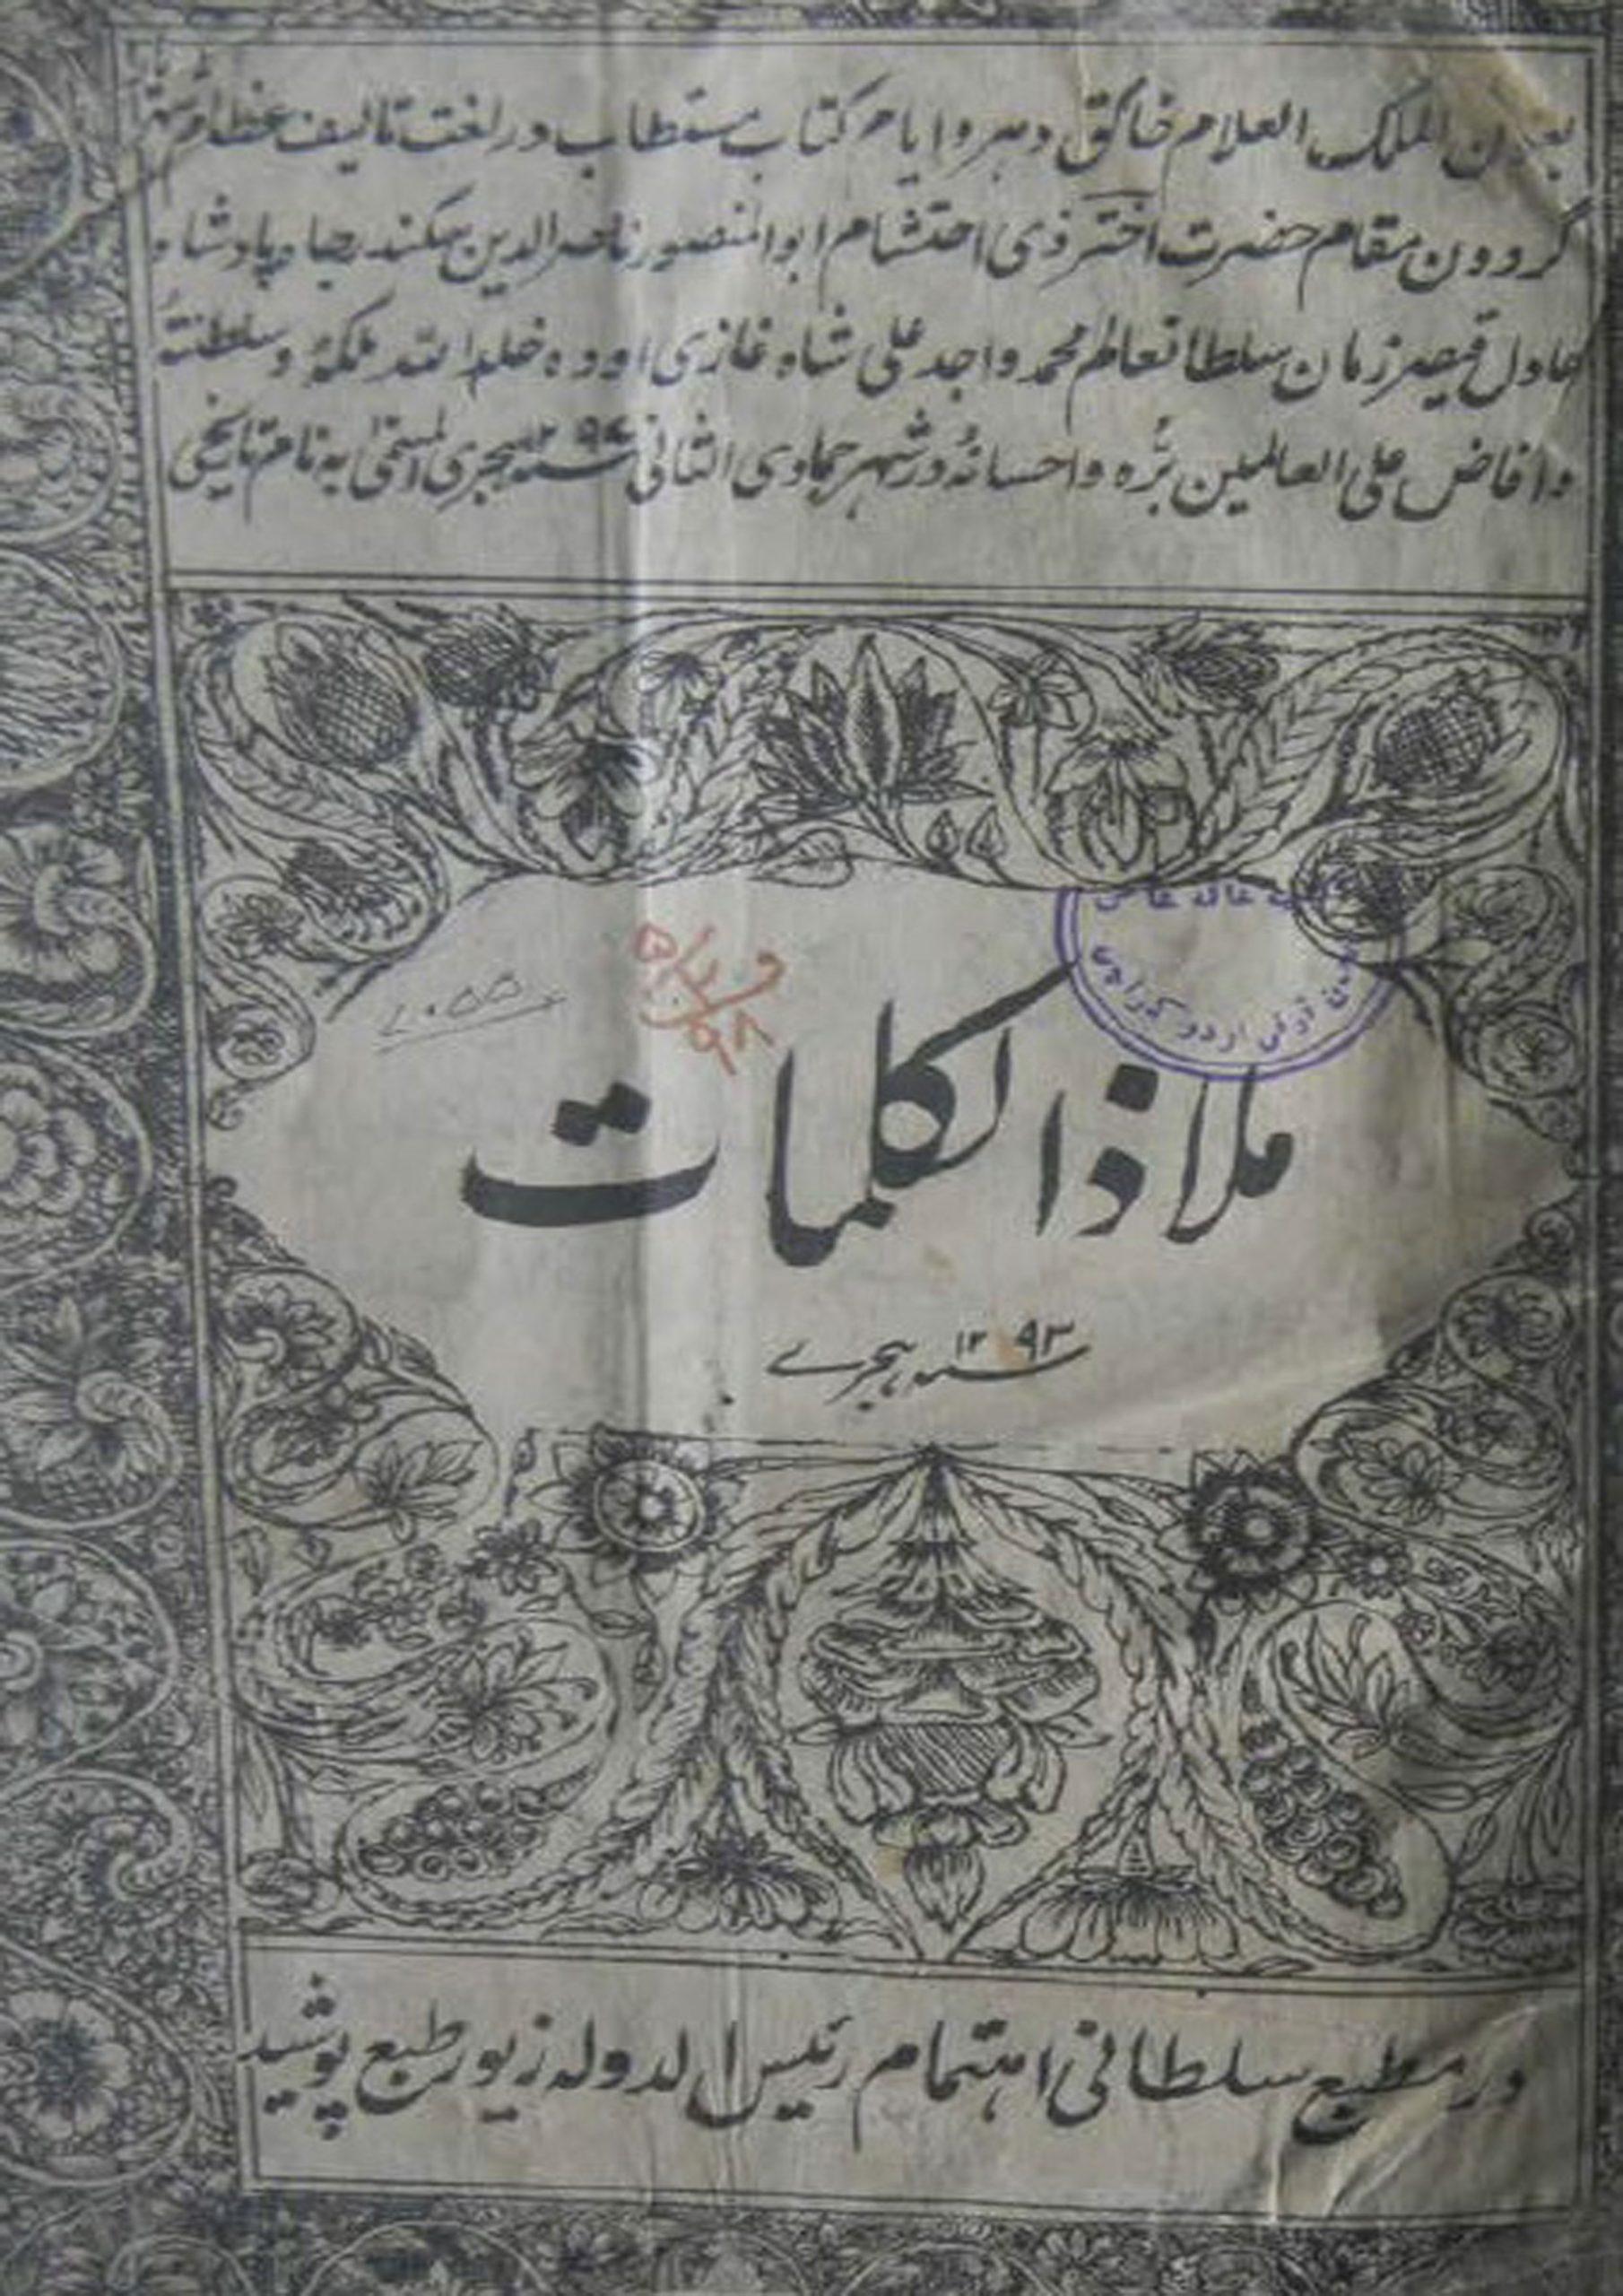 بعون الملک العلام خالق دهر و ایام کتاب مستطاب در لغت تالیف
گردون مقام حضرت اختر ذی احتشام ابوالمنصور ناصرالدین سکندر جاه پادشاه
عادل قیصر زمان سلطانعالم محمد واجد علی شاه غازی اوده خلد الله ملکهٗ و سلطنتهٗ
و افاض علی العالمین برّه و احسانهٗ در شهر جمادی الثانی سنه ہجری المسمّی به نام تاریخی
۲۰۵۵
ملاذ الکلمات
۱۲۹۳
سنه ہجرے
ترقی اردو کراچی
در مطبع سلطانی اہتمام رئیس الدوله زیور طبع پوشید